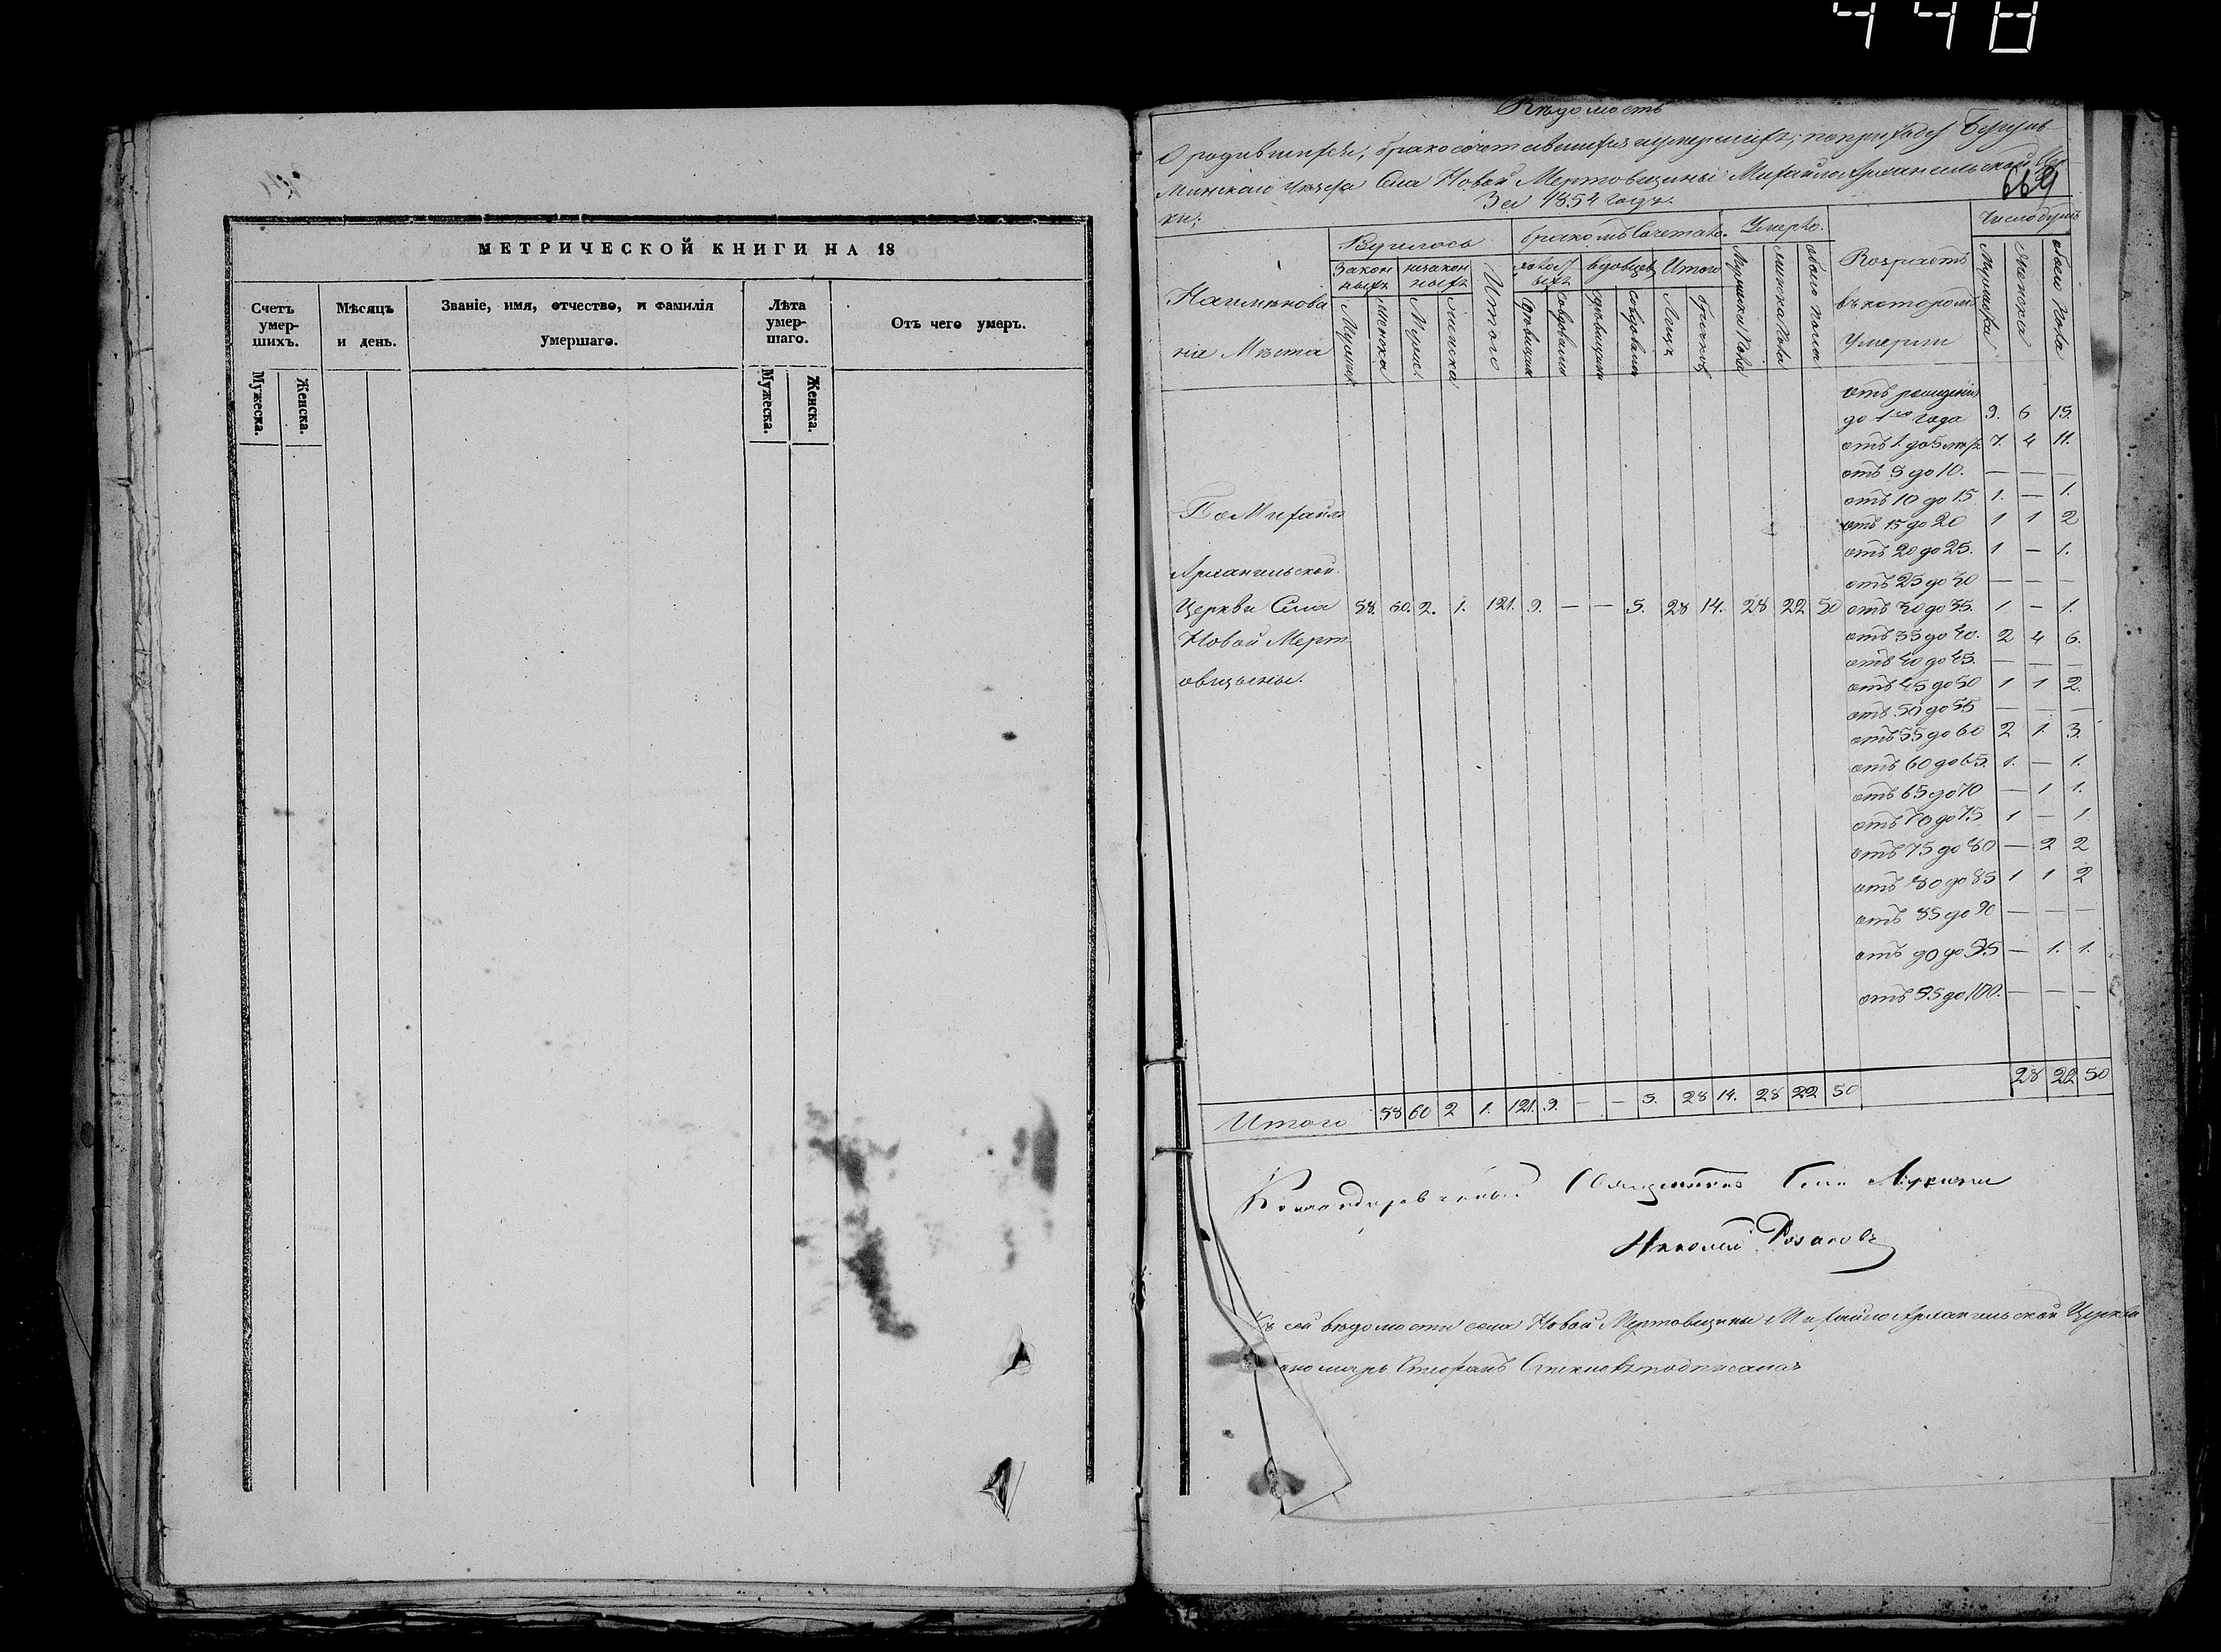 448
МЕТРИЧЕСКОЙ КНИГИ НА 18
Счетъ умер-шихъ.
Мѣсяцъ и день.
Званіе, имя, отчество, и фамилія умершаго.
Лѣта умер-шаго.
Отъ чего умеръ.
Мужеска.
Женска.
Мужеска.
Женска.
Вѣдомость
О родившихся, бракосочетавшихся и умершихъ, по приходу Бугуль-
минскаго уѣзда Села Новой Мертовщины Михайло Архангельской Цер
кви. За 1854 годъ.
669
Наименова
нія Мѣста
Родилось
Закон ныхъ
незакон ныхъ
Итого
бракомъ Сочетало.
вдовцевъ
Итого
Лицъ
Браковъ
Умерло.
Мужеска Пола
Женска Пола
Обоего пола
Возрастъ
въ которомъ
Умерли
Число душъ
Мужеска
Женска
Обоего Пола
отъ рожденія
до 1го года 9. 6 15.
отъ 1 до 5 7. 4 11.
отъ 5 до 10. — — —
отъ 10 до 15 1. — 1.
отъ 15 до 20 1 1 2
отъ 20 до 25. 1 — 1.
отъ 25 до 30 — — —
отъ 30 до 35. 1 — 1.
отъ 35 до 40. 2 4 6.
отъ 40 до 45. — — —
отъ 45 до 50 1 1 2.
отъ 50 до 55 — — —
отъ 55 до 60 2 1. 3.
отъ 60 до 65. 1. — 1.
отъ 65 до 70 — 1 1.
отъ 70 до 75 1 — 1
отъ 75 до 80 — 2 2
отъ 80 до 85 1 1 2
отъ 85 до 90 — — —
отъ 90 до 95 — 1. 1.
отъ 95 до 100. — — —
28 22 50
Архангельской
Церкви Села 58. 60. 2. 1. 121. 9. — — 5. 28 14. 28 22 50
Новой Мерт
овщины.
Итого 58 60 2 1. 121. 9. — — 5. 28 14. 28 22 50
Командированный Священникъ Села
Николай
Къ сей вѣдомости села Новой Мертовщины Михайло Архангельской Церкви
Стефанъ подписался